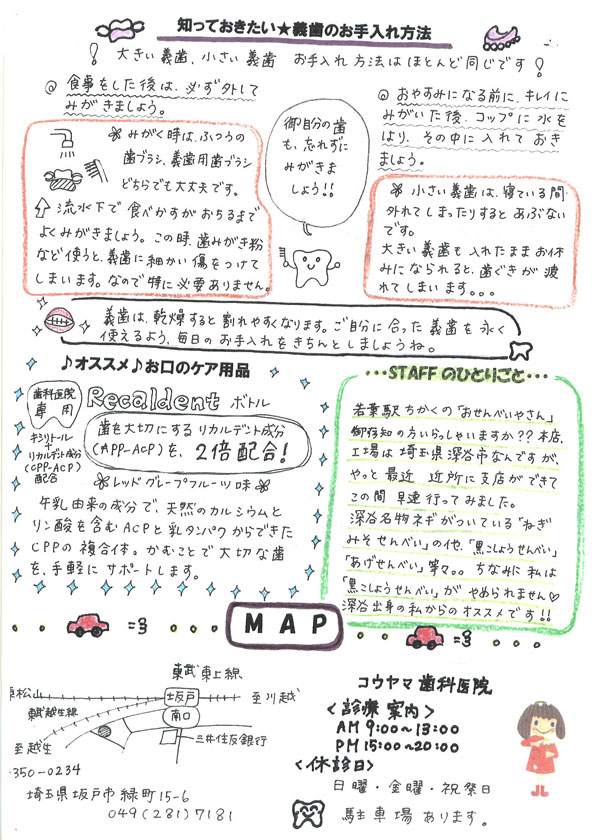 知っておきたい★義歯のお手入れ方法
! 大きい義歯、小さい義歯 お手入れ方法はほとんど同じです!
◎ 食事をした後は、必ず外して
みがきましょう。
※ みがく時は、ふつうの
歯ブラシ、義歯用歯ブラシ
どちらでも大丈夫です。
↑ 流水下で食べかすがおちるまで
よくみがきましょう。この時、歯みがき粉
など使うと、義歯に細かい傷をつけて
しまいます。なので特に必要ありません。
御自分の歯
も、忘れずに
みがきま
しょう!!
◎ おやすみになる前に、キレイに
みがいた後、コップに水を
はり、その中に入れておき
ましょう。
※ 小さい義歯は、寝ている間
外れてしまったりするとあぶない
です。
大きい義歯も入れたままお休
みになられると、歯ぐきが疲
れてしまいます。。。
義歯は、乾燥すると割れやすくなります。ご自分に合った義歯を永く
使えるよう、毎日のお手入れをきちんとしましょうね。
♪オススメ♪お口のケア用品
歯科医院
専用
キシリトール
+
リカルデント成分
(CPP-ACP)
配合
Recaldent ボトル
歯を大切にするリカルデント成分
(APP-ACP)を、2倍配合!
※レッドグレープフルーツ味※
牛乳由来の成分で、天然のカルシウムと
リン酸を含むACPと乳タンパクからできた
CPPの複合体。かむことで大切な歯
を、手軽にサポートします。
・・・STAFFのひとりごと・・・
若葉駅ちかくの「おせんべいやさん」
御存知の方いらっしゃいますか??本店、
工場は埼玉県深谷市なんですが、
やっと最近 近所に支店ができて
この間早速行ってみました。
深谷名物ネギがついている「ねぎ
みそせんべい」の他、「黒こしょうせんべい」
「あげせんべい」等々。。ちなみに私は
「黒こしょうせんべい」がやめられません♡
深谷出身の私からのオススメです!!
MAP
東武東上線
東松山
坂戸
至川越
東武越生線
南口
至越生
三井住友銀行
350-0234
埼玉県坂戸市緑町15-6
049(281)7181
コウヤマ歯科医院
<診療案内>
AM 9:00〜13:00
PM 15:00〜20:00
<休診日>
日曜・金曜・祝祭日
駐車場あります。